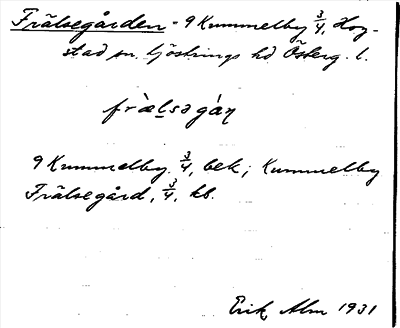 Frälsegården - 9 Kummelby 3/4, Hog-
stad sn. Göstrings hd Österg. l.
fràlsagáṇ
9 Kummelby 3/4, bek; Kummelby
Frälsegård, 3/4, kb.
Erik Alm 1931